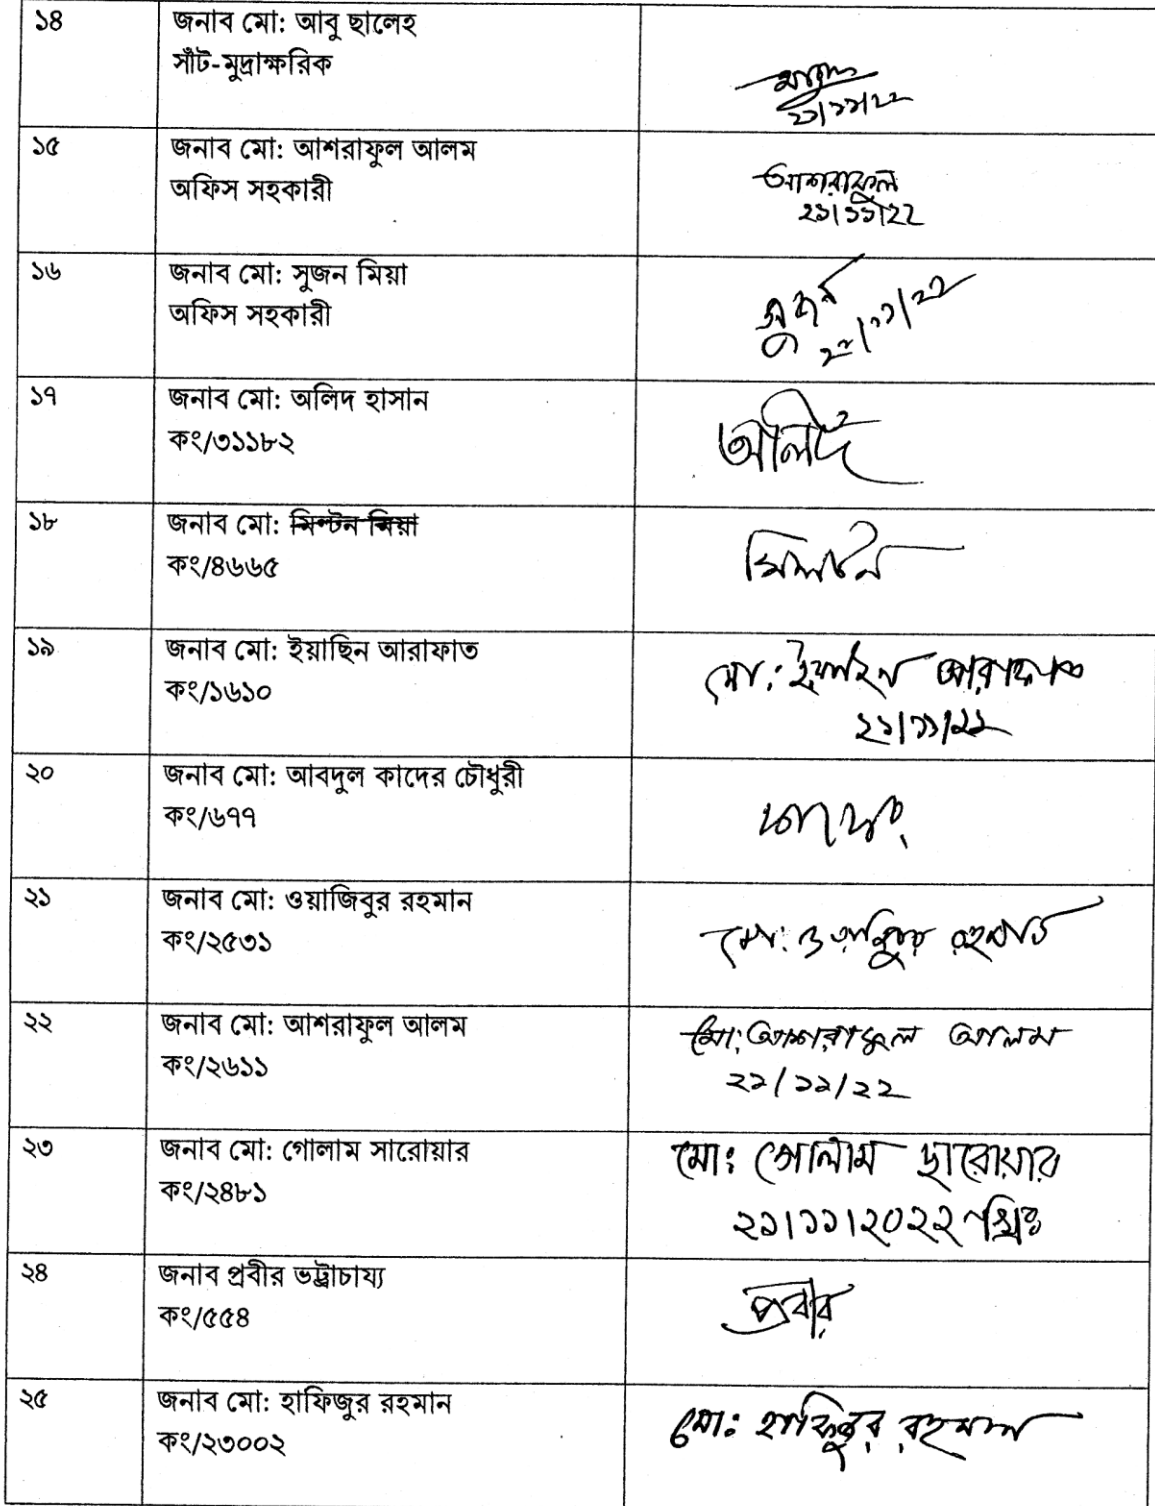 ১৪
জনাব মো: আবু ছালেহ
সাঁট-মুদ্রাক্ষরিক
২১/১১/২২
১৫
জনাব মো: আশরাফুল আলম
অফিস সহকারী
আশরাফুল
২১/১১/২২
১৬
জনাব মো: সুজন মিয়া
অফিস সহকারী
সুজন
২১/১১/২২
১৭
জনাব মো: অলিদ হাসান
কং/৩১১৮২
অলিদ
১৮
জনাব মো: মিল্টন মিয়া
কং/৪৬৬৫
মিলটন
১৯
জনাব মো: ইয়াছিন আরাফাত
কং/১৬১০
মো: ইয়াছিন আরাফাত
২১/১১/২২
২০
জনাব মো: আবদুল কাদের চৌধুরী
কং/৬৭৭
২১
জনাব মো: ওয়াজিবুর রহমান
কং/২৫৩১
মো: ওয়াজিবুর রহমান
২২
জনাব মো: আশরাফুল আলম
কং/২৬১১
মো: আশরাফুল আলম
২১/১১/২২
২৩
জনাব মো: গোলাম সারোয়ার
কং/২৪৮১
মো: গোলাম ছারোয়ার
২১/১১/২০২২ খ্রিঃ
২৪
জনাব প্রবীর ভট্টাচায্য
কং/৫৫৪
প্রবীর
২৫
জনাব মো: হাফিজুর রহমান
কং/২৩০০২
মো: হাফিজুর রহমান